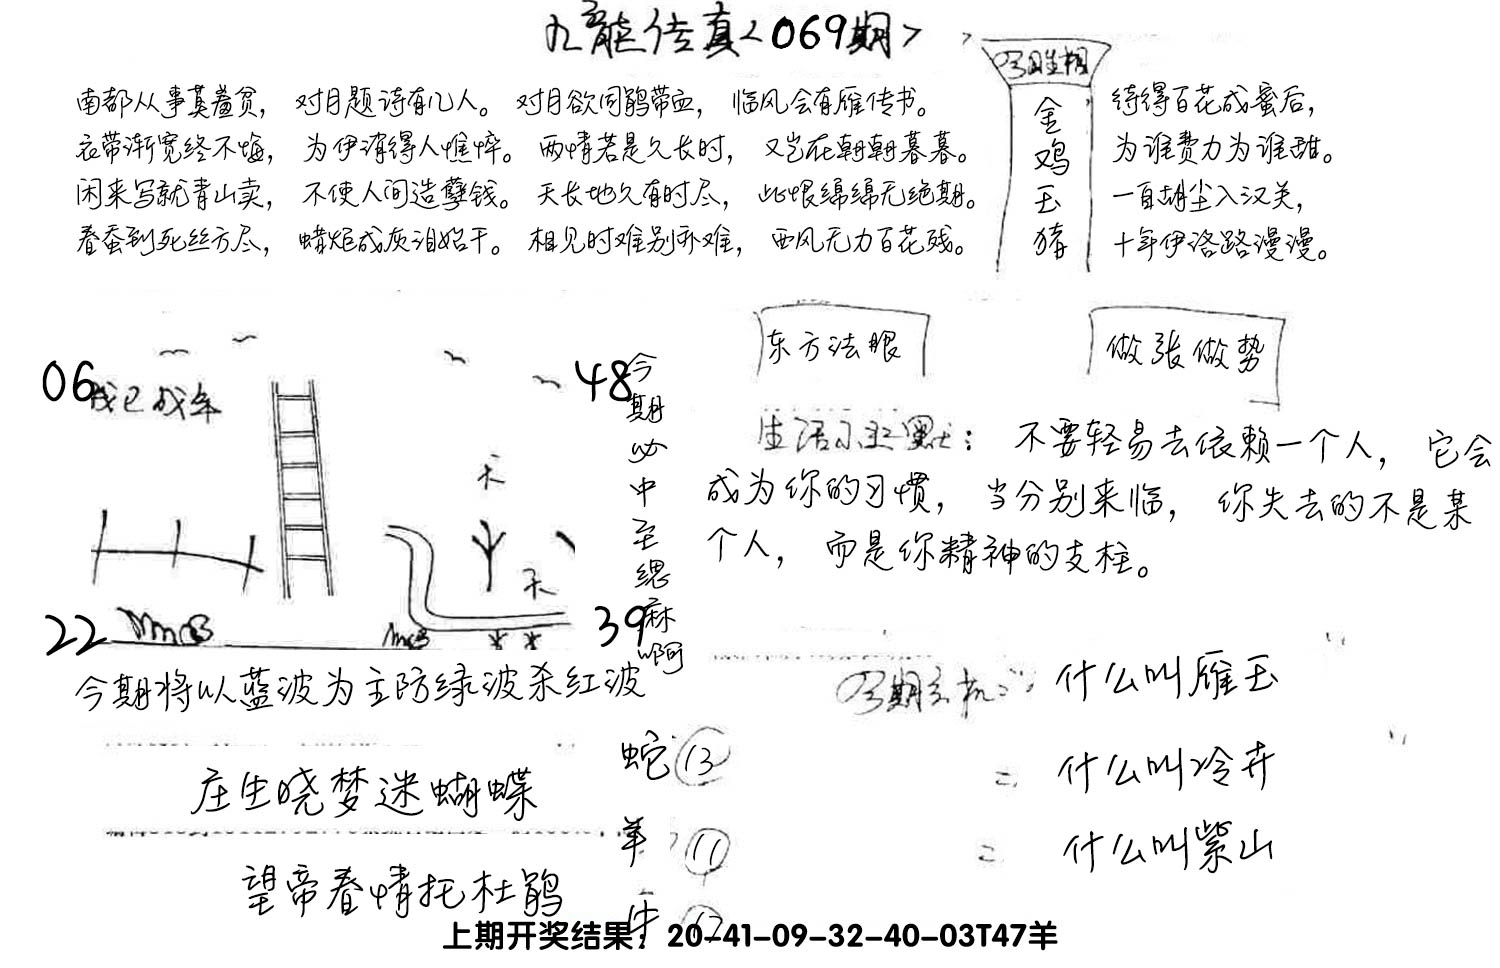 九龙传真<069期>
今期生相
金鸡玉猪
南都从事莫羞贫，对月题诗有几人。对月欲同鹃带血，临风会有雁传书。
衣带渐宽终不悔，为伊消得人憔悴。两情若是久长时，又岂在朝朝暮暮。
闲来写就青山卖，不使人间造孽钱。天长地久有时尽，此恨绵绵无绝期。
春蚕到死丝方尽，蜡炬成灰泪始干。相见时难别亦难，西风无力百花残。
待得百花成蜜后，
为谁费力为谁甜。
一自胡尘入汉关，
十年伊洛路漫漫。
06
48
22
39
天
天
今期必中至缌麻啊
今期将以蓝波为主防绿波杀红波
庄生晓梦迷蝴蝶
望帝春情托杜鹃
东方法眼
做张做势
生活小幽默：不要轻易去依赖一个人，它会
成为你的习惯，当分别来临，你失去的不是某
个人，而是你精神的支柱。
今期玄机：什么叫雁玉
二 什么叫冷卉
二 什么叫紫山
蛇 13
羊 11
牛
上期开奖结果：20-41-09-32-40-03T47羊